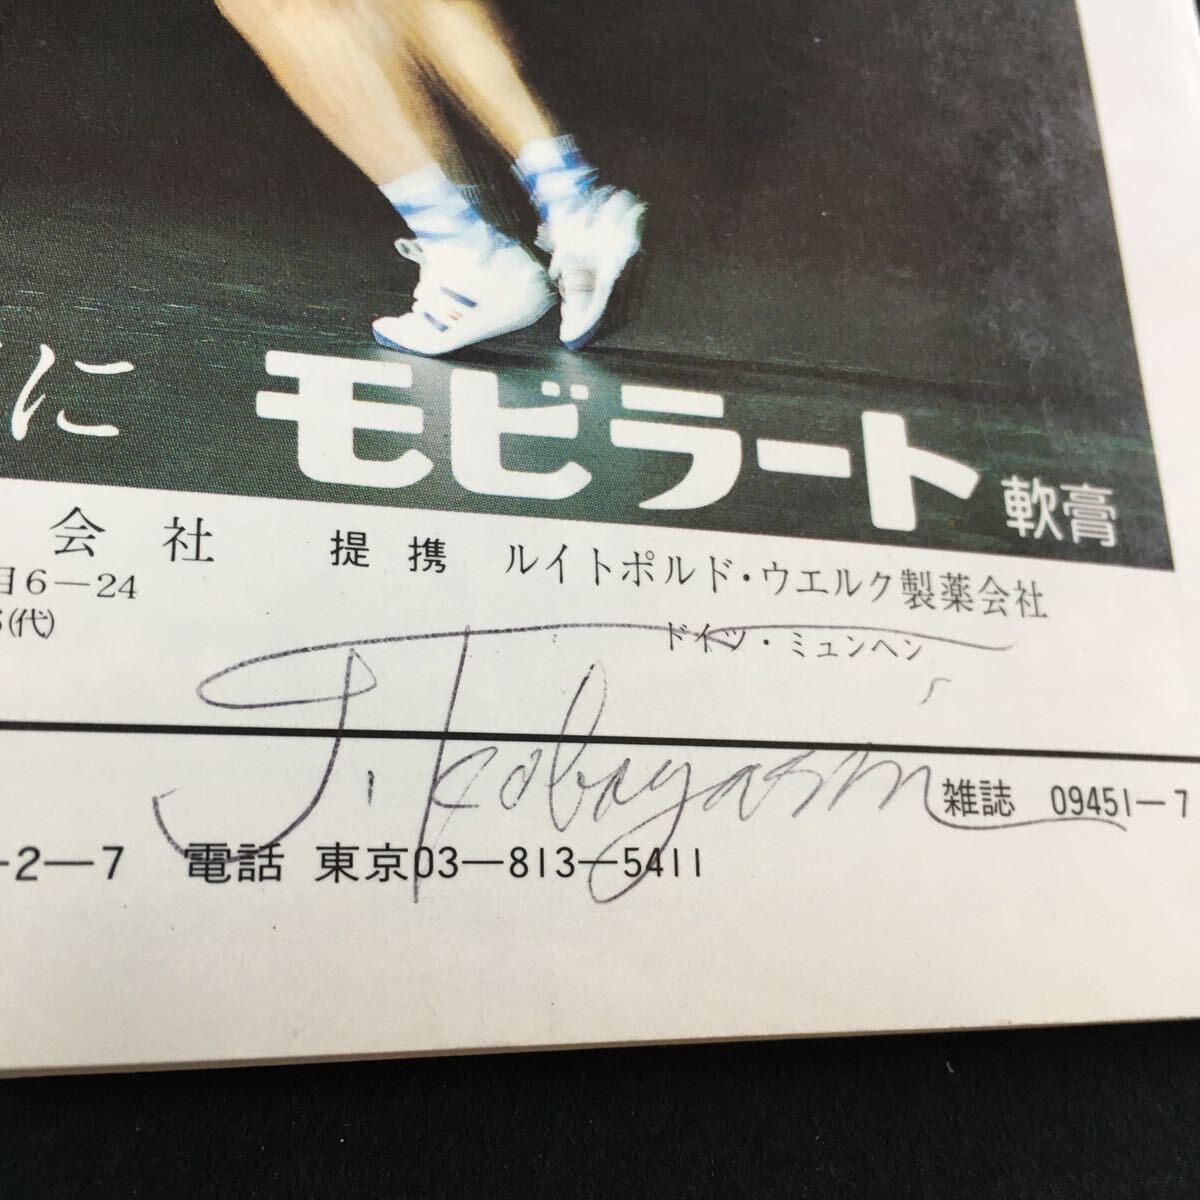 に モビラート 軟膏
会社 提携 ルイトポルド・ウエルク製薬会社
目6－24
(代)
ドイツ・ミュンヘン
J. Kobayashi
雑誌 09451-7
-2-7 電話 東京03-813-5411